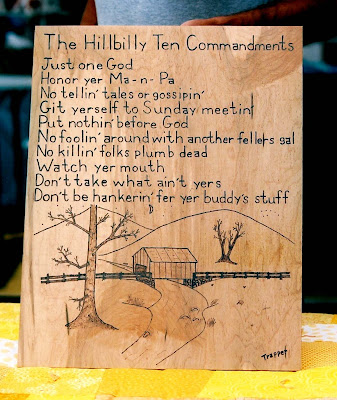 The Hillbilly Ten Commandments
Just one God
Honor yer Ma-n-Pa
No tellin' tales or gossipin'
Git yerself to Sunday meetin'
Put nothin' before God
No foolin' around with another fellers gal
No killin' folks plumb dead
Watch yer mouth
Don't take what ain't yers
Don't be hankerin' fer yer buddy's stuff